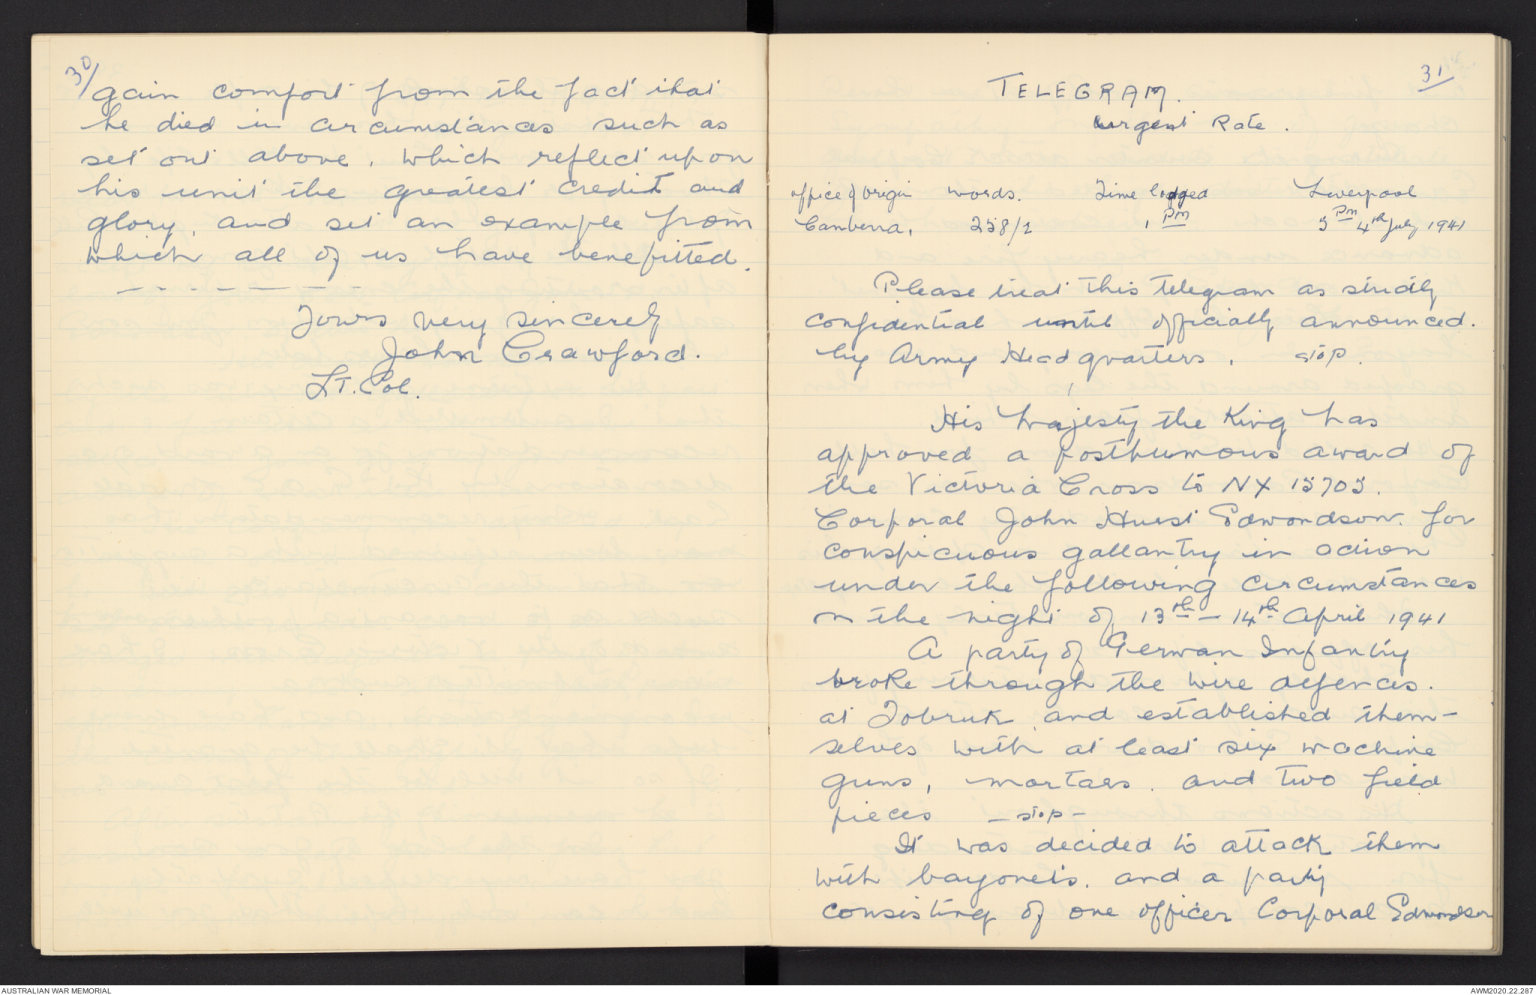 30/
gain comfort from the fact that
he died in circumstances such as
set out above, which reflect upon
his unit the greatest credit and
glory, and set an example from
which all of us have benefitted.
Yours very sincerely
John Crawford.
Lt. Col.
31
TELEGRAM.
urgent Rate.
office of origin words. Time lodged Liverpool
Canberra, 258/2 1 PM 5 PM 4th July 1941
Please treat this telegram as strictly
confidential until officially announced.
by Army Headquarters. stop.
His Majesty the King has
approved a posthumous award of
the Victoria Cross to NX 15705.
Corporal John Hurst Edmondson. for
conspicuous gallantry in action
under the following circumstances
on the night of 13th - 14th April 1941
A party of German Infantry
broke through the wire defences.
at Tobruk and established them-
selves with at least six machine
guns, mortars. and two field
pieces - stop -
It was decided to attack them
with bayonets. and a party
consisting of one officer Corporal Edmondson
AUSTRALIAN WAR MEMORIAL
AWM2020.22.287